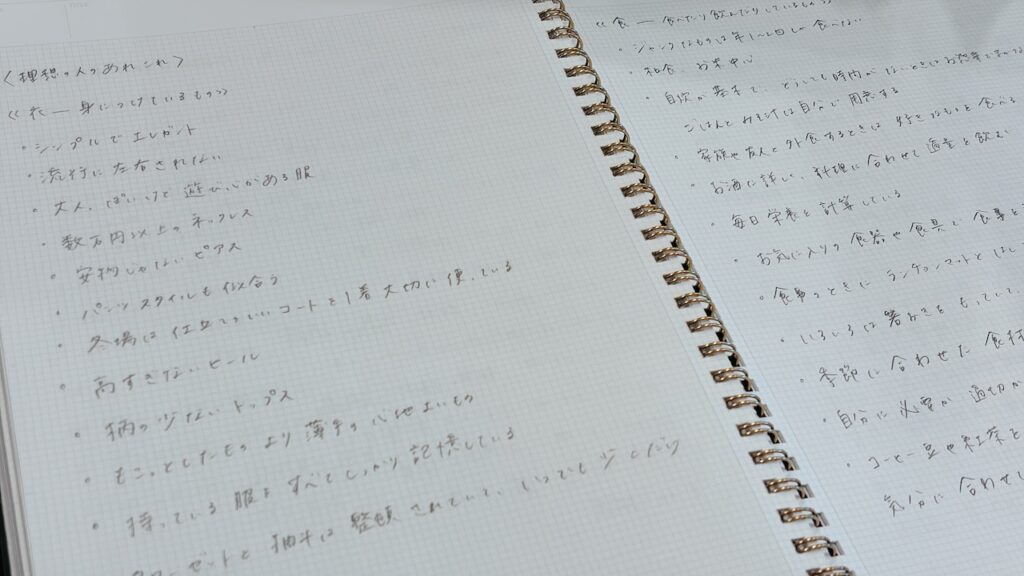 〈理想の人のあれこれ〉
≪衣 ― 身につけているもの≫
・シンプルでエレガント
・流行に左右されない
・大人っぽいけど遊び心がある服
・数万円以上のネックレス
・安物じゃないピアス
・パンツスタイルも似合う
・冬場は仕立てのいいコートを1着大切に使っている
・高すぎないヒール
・柄の少ないトップス
・もこっとしたものより薄手の心地よいもの
・持っている服をすべてしっかり記憶している
クローゼットと抽斗は整頓されていて、いつでも
≪食 ― 食べたり飲んだりしているもの
・ジャンクなものは年1〜2回しか食べない
・和食、お米中心
・自炊が基本で、どうしても時間がないときはお惣菜
ごはんとみそ汁は自分で用意する
・家族や友人と外食するときは好きなものを食べる
・お酒に詳しい、料理に合わせて適量を飲む
・毎日栄養を計算している
・お気に入りの食器や食具で食事を
・食事のときに ランチョンマットとはし
・いろいろな箸おきをもっていて、
・季節に合わせた食材
・自分に必要か適切か
・コーヒー豆や紅茶を
気分に合わせ